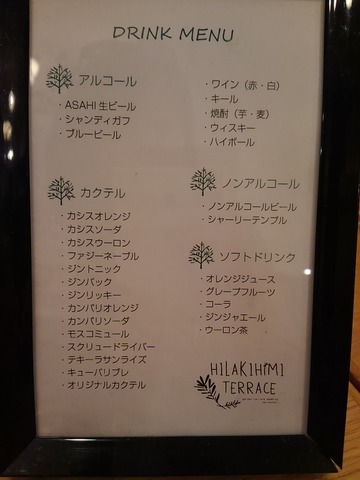 DRINK MENU
アルコール
・ASAHI 生ビール
・シャンディガフ
・ブルービール
・ワイン（赤・白）
・キール
・焼酎（芋・麦）
・ウィスキー
・ハイボール
カクテル
・カシスオレンジ
・カシスソーダ
・カシスウーロン
・ファジーネーブル
・ジントニック
・ジンバック
・ジンリッキー
・カンパリオレンジ
・カンパリソーダ
・モスコミュール
・スクリュードライバー
・テキーラサンライズ
・キューバリブレ
・オリジナルカクテル
ノンアルコール
・ノンアルコールビール
・シャーリーテンプル
ソフトドリンク
・オレンジジュース
・グレープフルーツ
・コーラ
・ジンジャエール
・ウーロン茶
HiLAKiHiMi
TERRACE